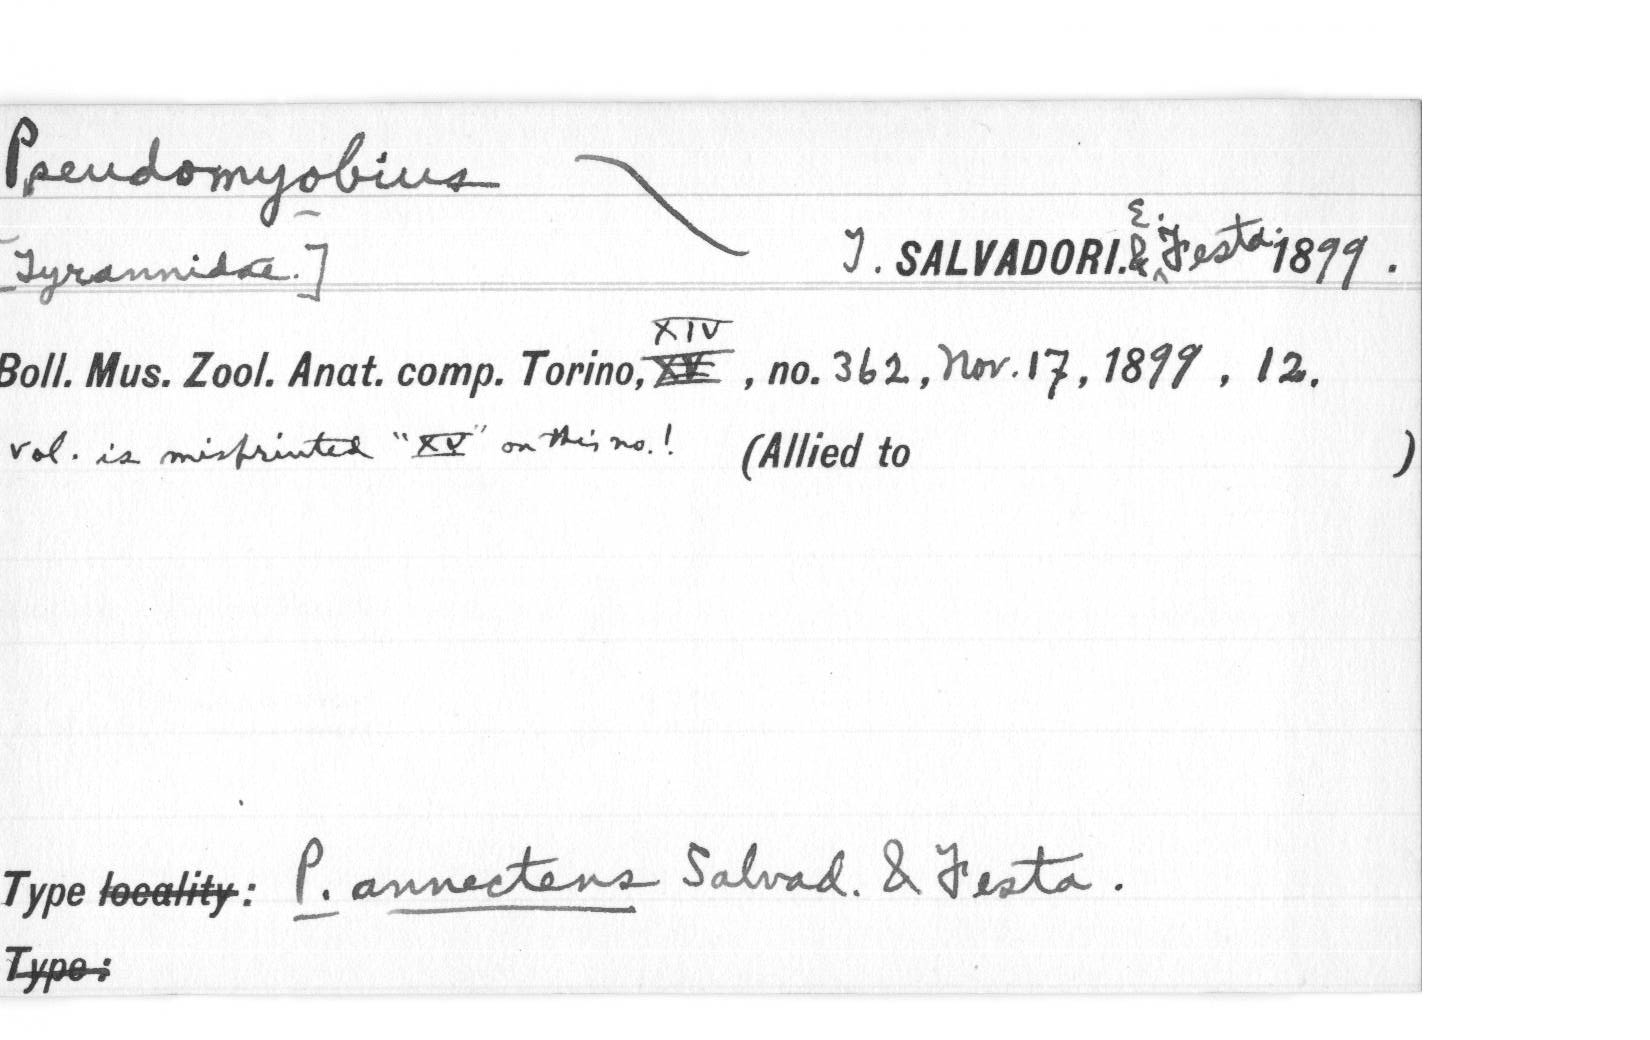 Pseudomyobius
[Tyrannidae.] T. SALVADORI. & E. Festa. 1899.
Boll. Mus. Zool. Anat. comp. Torino, XIV XV, no. 362, Nov. 17, 1899, 12.
vol. is misprinted "XV" on this no.! (Allied to )
Type locality: P. annectens Salvad. & Festa.
Type: